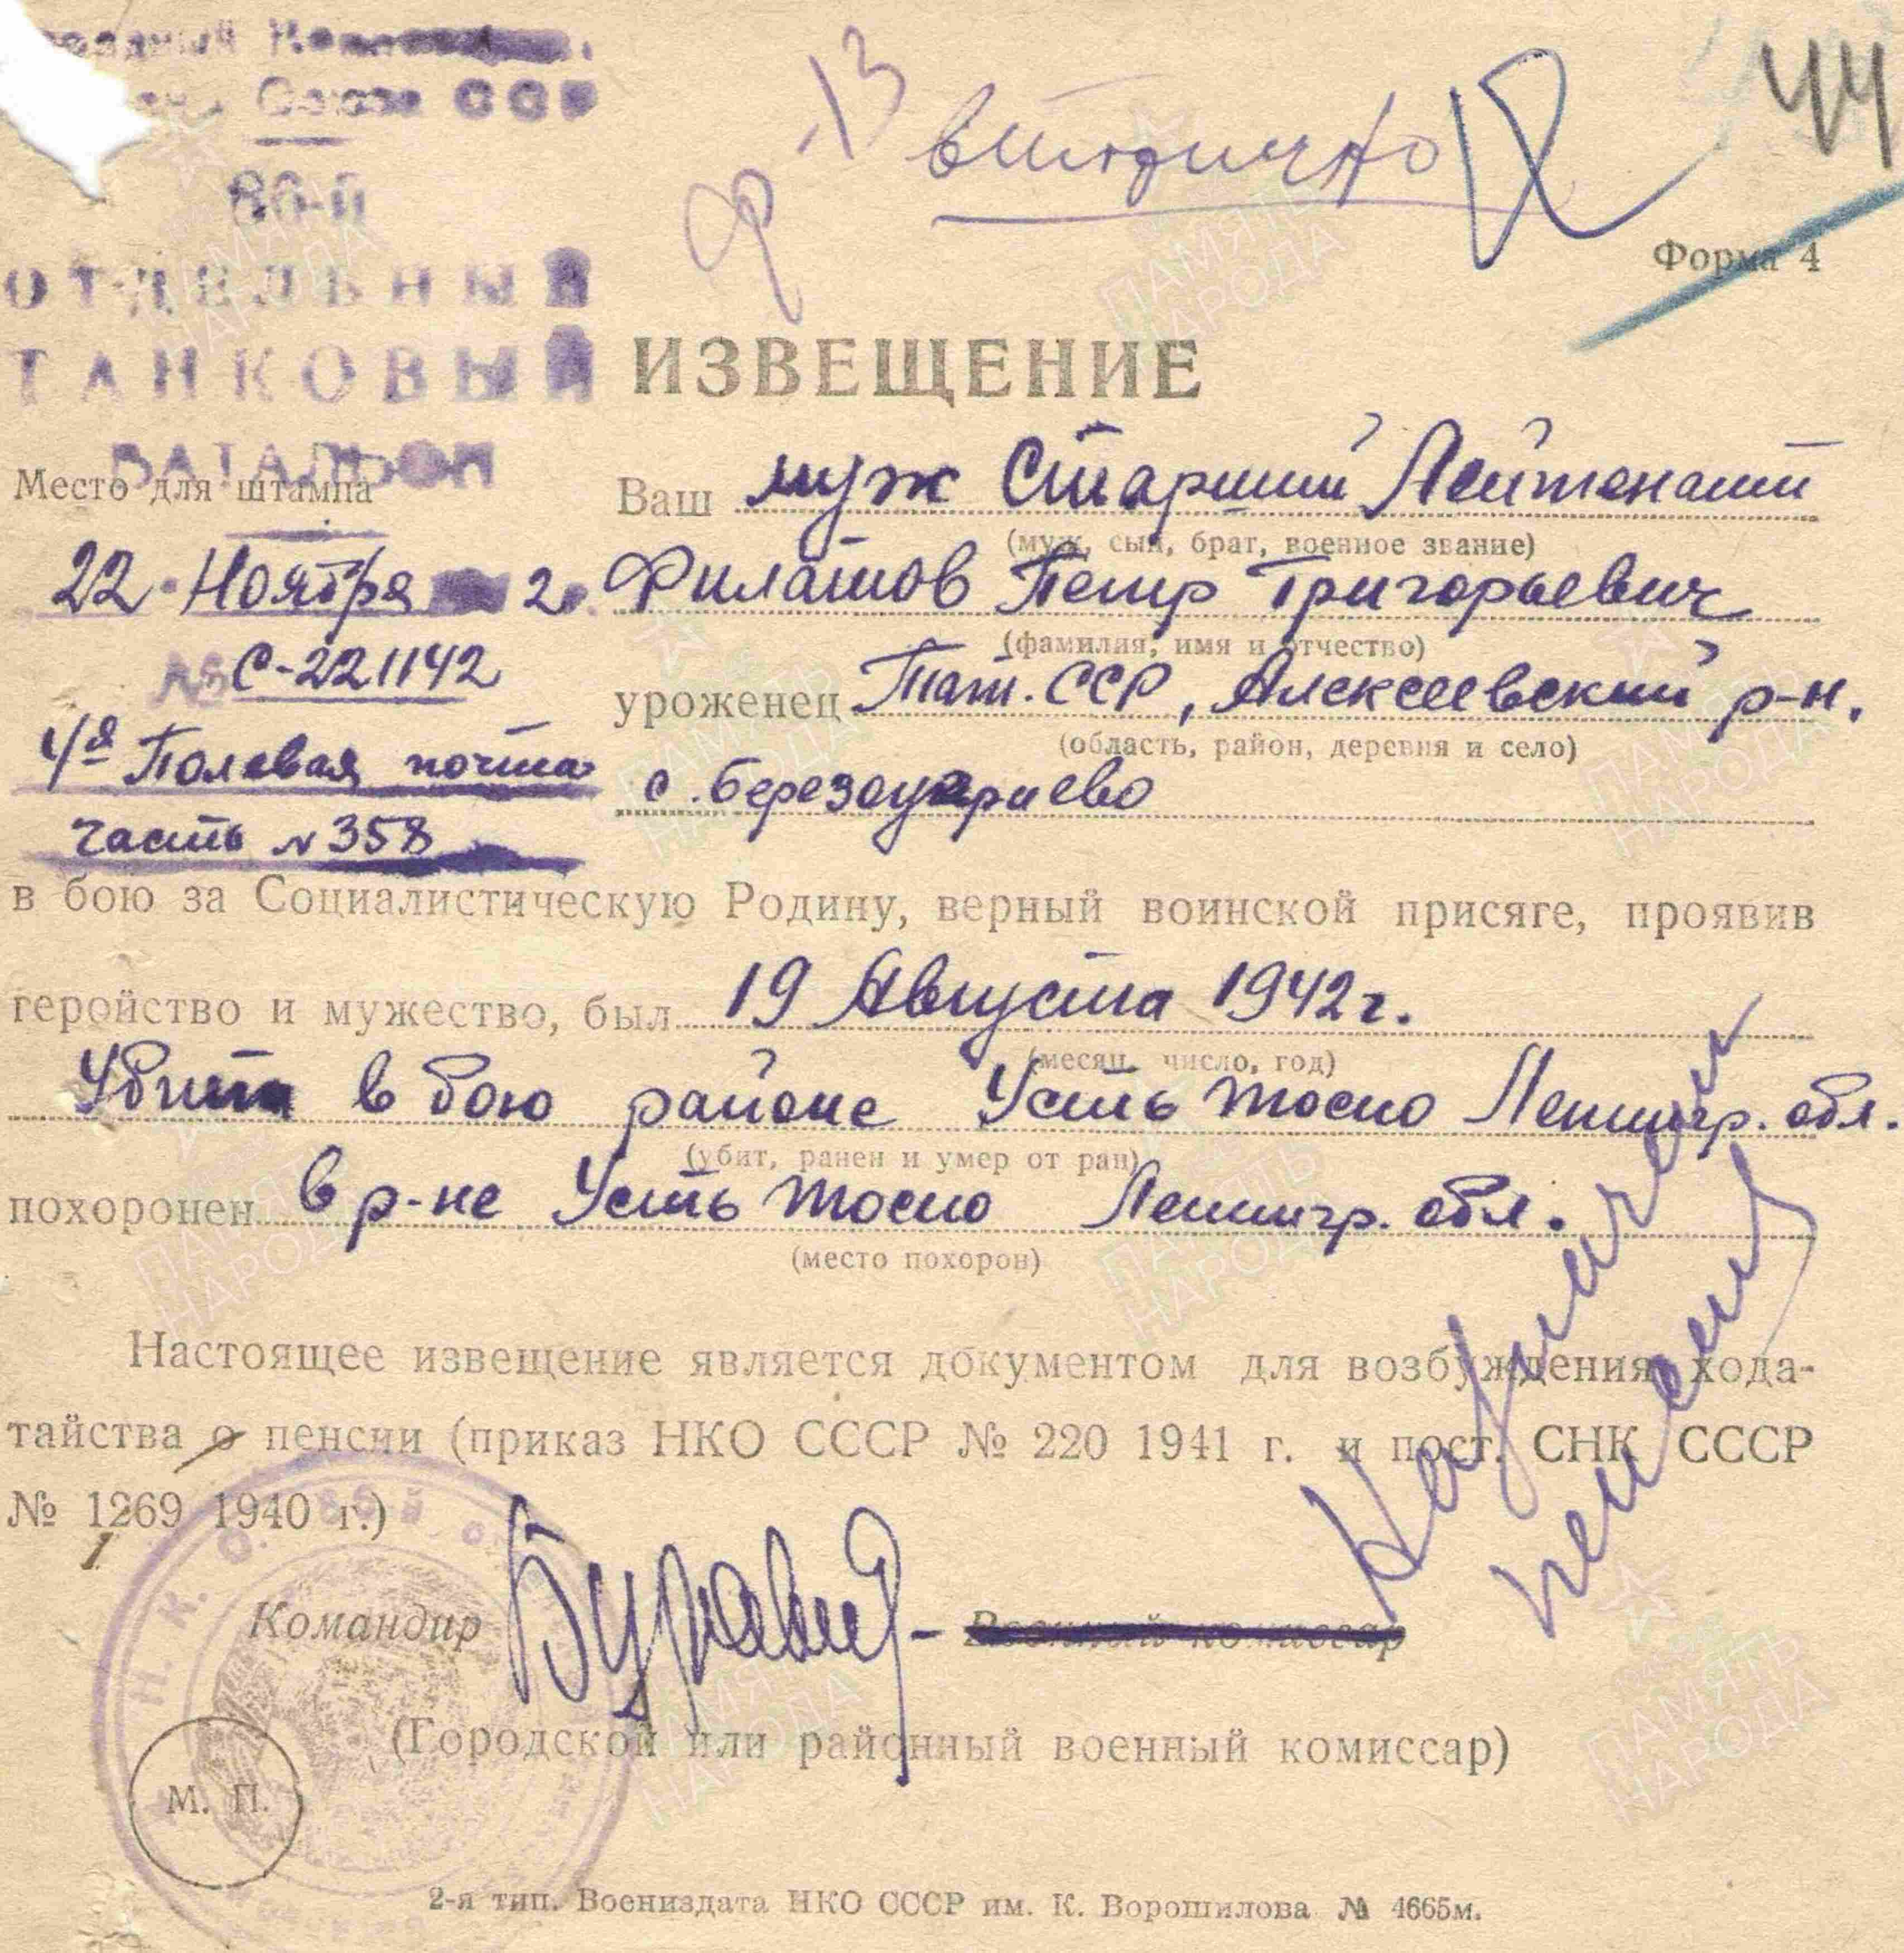 44
13
вторично
Форма 4
Союза ССР
86-й
ОТДЕЛЬНЫЙ
ТАНКОВЫЙ
БАТАЛЬОН
Место для штампа
22 Ноября 2
№ С-221142
4я Полевая почта
часть № 358
ИЗВЕЩЕНИЕ
Ваш муж Старший Лейтенант
(муж, сын, брат, военное звание)
Филатов Петр Григорьевич
(фамилия, имя и отчество)
уроженец Тат. ССР, Алексеевский р-н.
(область, район, деревня и село)
с.
в бою за Социалистическую Родину, верный воинской присяге, проявив
геройство и мужество, был 19 Августа 1942 г.
(месяц, число, год)
Убит в бою районе Усть Тосно Ленингр. обл.
(убит, ранен и умер от ран)
похоронен в р-не Усть Тосно Ленингр. обл.
(место похорон)
Настоящее извещение является документом для возбуждения хода-
тайства о пенсии (приказ НКО СССР № 220 1941 г. и пост. СНК СССР
№ 1269 1940 г.)
Н. К. О.
Командир
Военный комиссар
(Городской или районный военный комиссар)
М. П.
2-я тип. Воениздата НКО СССР им. К. Ворошилова № 4665м.
ПАМЯТЬ
НАРОДА